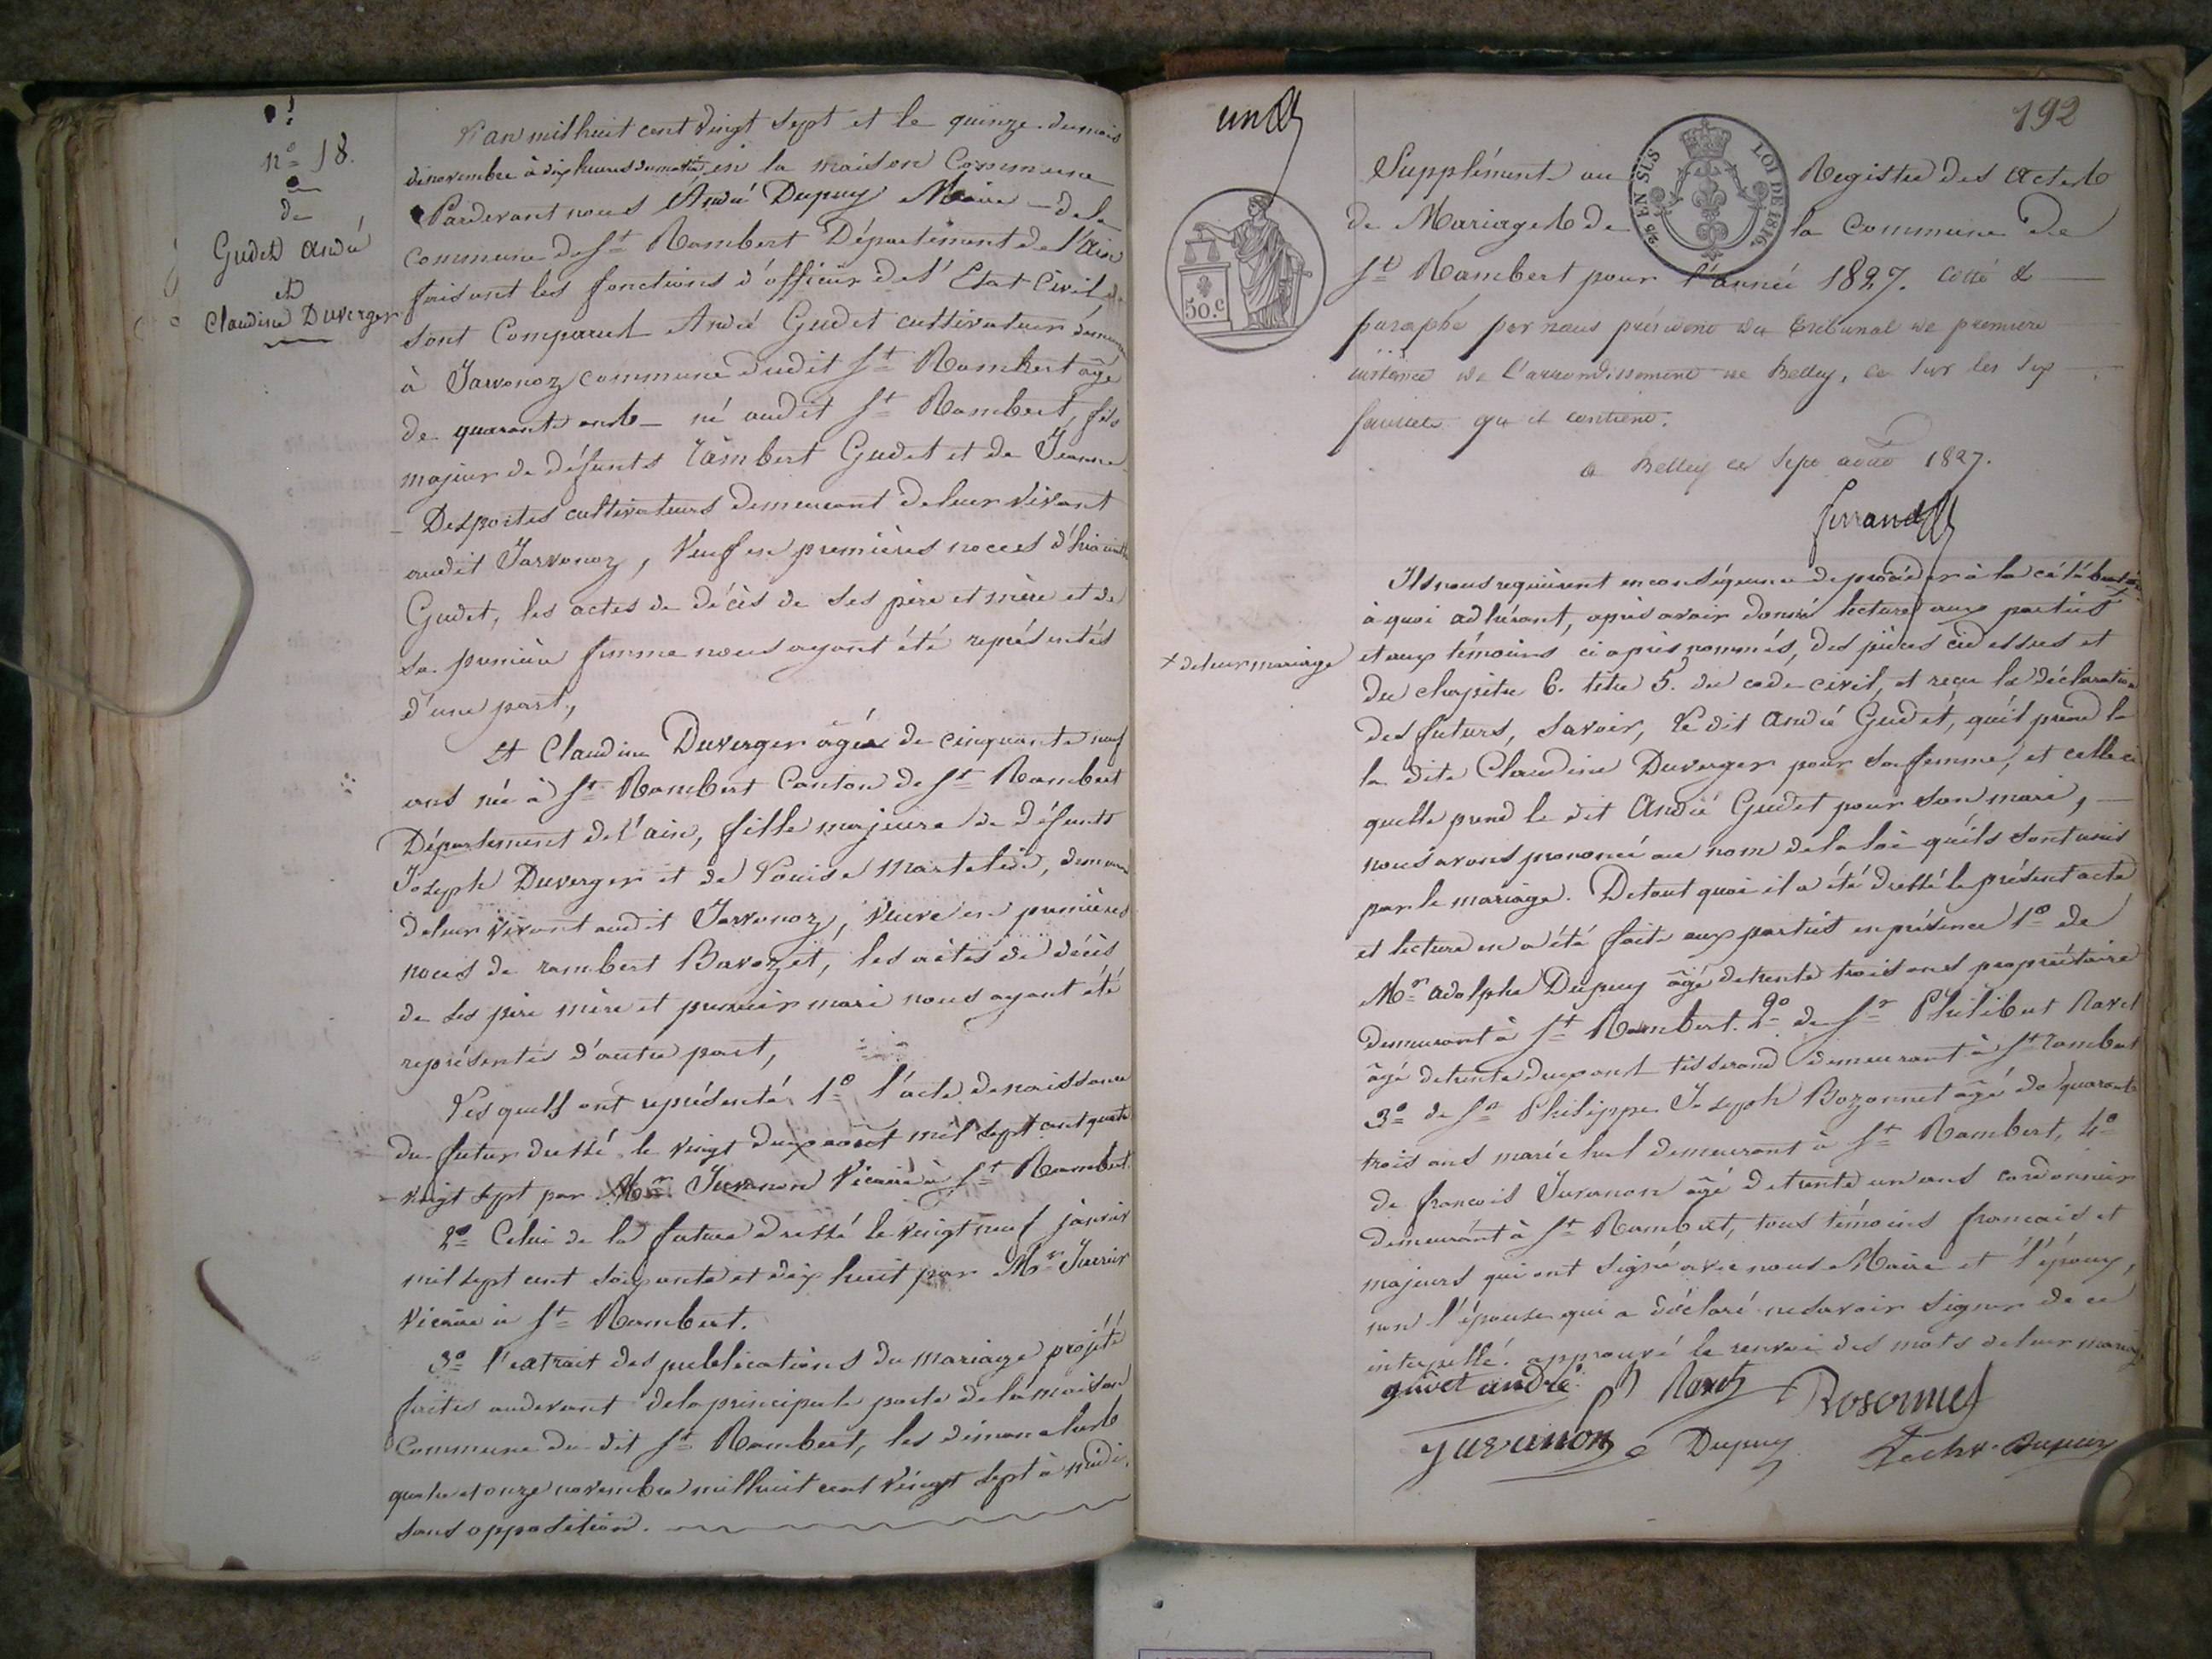 n° 18.
de
Gudet André
et
Claudine Duverger
L'an mil huit cent vingt sept et le quinze du mois
de novembre à dix heures du matin en la maison Commune
Pardevant nous André Dupuy Maire de la
Commune de St Rambert Département de l'Ain
faisant les fonctions d'officier de l'Etat Civil,
sont Comparus André Gudet cultivateur
à Javornoz commune dudit St Rambert âgé
de quarante ans né audit St Rambert, fils
majeur de défunts Rambert Gudet et de Jeanne
Desportes cultivateurs demeurant de leur vivant
audit Javornoz, Veuf en premières noces
Gudet, les actes de décès de ses père et mère et de
sa première femme nous ayant été représentés
d'une part,
Et Claudine Duverger âgée de cinquante neuf
ans née à St Rambert Canton de St Rambert
Département de l'ain, fille majeure de défunts
Joseph Duverger et de Louise
de leur vivant audit Javornoz, Veuve en premières
noces de rambert Bavozet, les actes de décès
de ses père mère et premier mari nous ayant été
représentés d'autre part,
Lesquels ont représenté 1° l'acte de naissance
du futur dressé le vingt deux août mil sept cent quatre
vingt sept par Mr. Juvanon Vicaire à St Rambert.
2° Celui de la future dressé le vingt neuf janvier
mil sept cent soixante et dix huit par Mr
Vicaire à St Rambert.
3° l'extrait des publications du mariage projeté
faites audevant de la principale porte de la maison
Commune du dit St Rambert, les dimanches
quatre et onze novembre mil huit cent vingt sept à midi,
sans opposition.
un
192
50.C
25 EN SUS
LOI DE 1816
Supplément au Registre des Actes
de Mariages de la Commune de
St Rambert pour l'année 1827. Cotté &
paraphé par nous président du tribunal de premiere
instance de l'arrondissement de Belley, sur les
feuillets qu'il contient.
a Belley ce sept août 1827.
ferrand
Ils nous requièrent en conséquence de procéder à la célébration
à quoi adhérant, après avoir donné lecture aux parties
+ de leur mariage
et aux témoins ci après nommés, des pièces ci dessus et
du chapitre 6. titre 5. du code civil, et reçu la déclaration
des futurs, savoir, le dit André Gudet, qu'il prend la
la dite Claudine Duverger pour sa femme, et celle ci
quelle prend le dit André Gudet pour son mari,
nous avons prononcé au nom de la loi qu'ils sont unis
par le mariage. De tout quoi il a été dressé le présent acte
et lecture en a été faite aux parties en présence 1° de
Mr adolphe Dupuy âgé de trente trois ans propriétaire
demeurant à St Rambert. 2° de Sr Philibert Ravet
âgé de trente deux ans tisserand demeurant à St rambert
3° de Sr Philippe Joseph Bozonnet âgé de quarante
trois ans maréchal demeurant à St Rambert, 4°
de françois Juvanon âgé de trente un ans cordonnier
demeurant à St Rambert, tous témoins français et
majeurs qui ont signé avec nous Maire et l'époux,
non l'épouse qui a déclaré ne savoir signer de ce
interpellé. approuvé le renvoi des mots de leur mariage
gudet andré ph Ravet Bosonnet
Juvanon Dupuy Dupuy